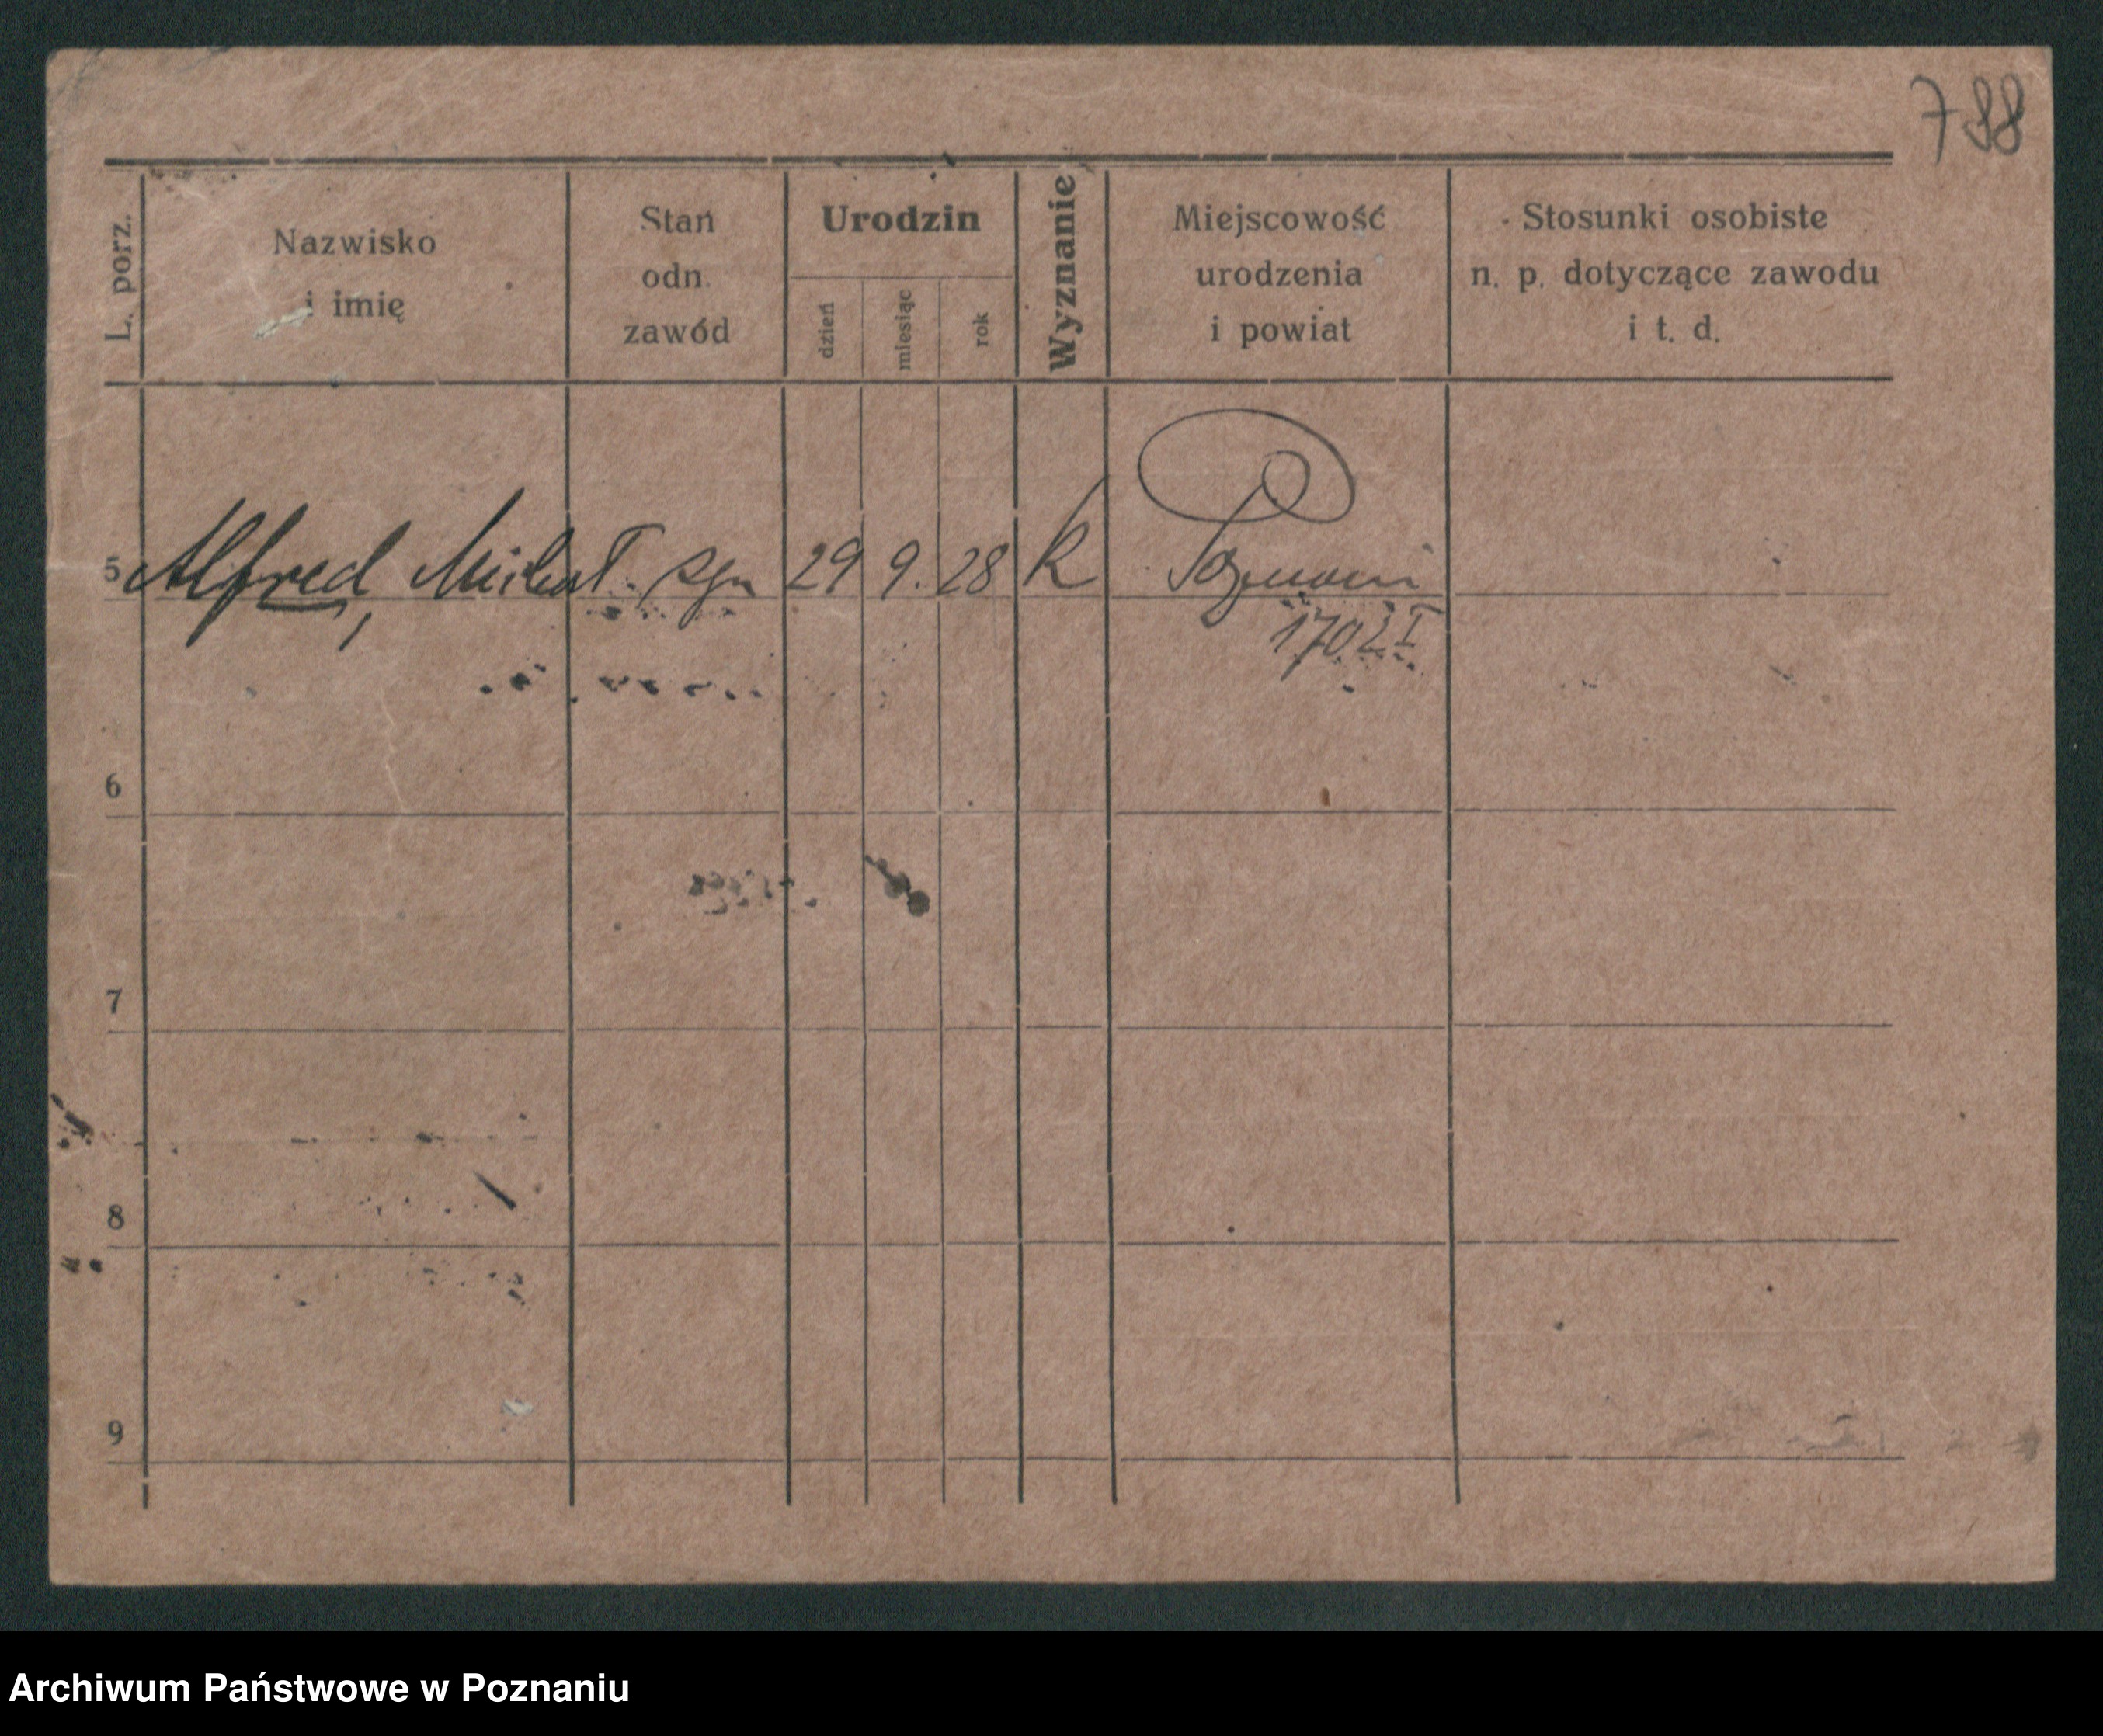 788
L. porz.
Nazwisko
i imię
Stan
odn.
zawód
Urodzin
dzień
miesiąc
rok
Wyznanie
Miejscowość
urodzenia
i powiat
Stosunki osobiste
n. p. dotyczące zawodu
i t. d.
5 Alfred, Michał syn 29 9. 28 k Poznań
1702 I
6
7
8
9
Archiwum Państwowe w Poznaniu